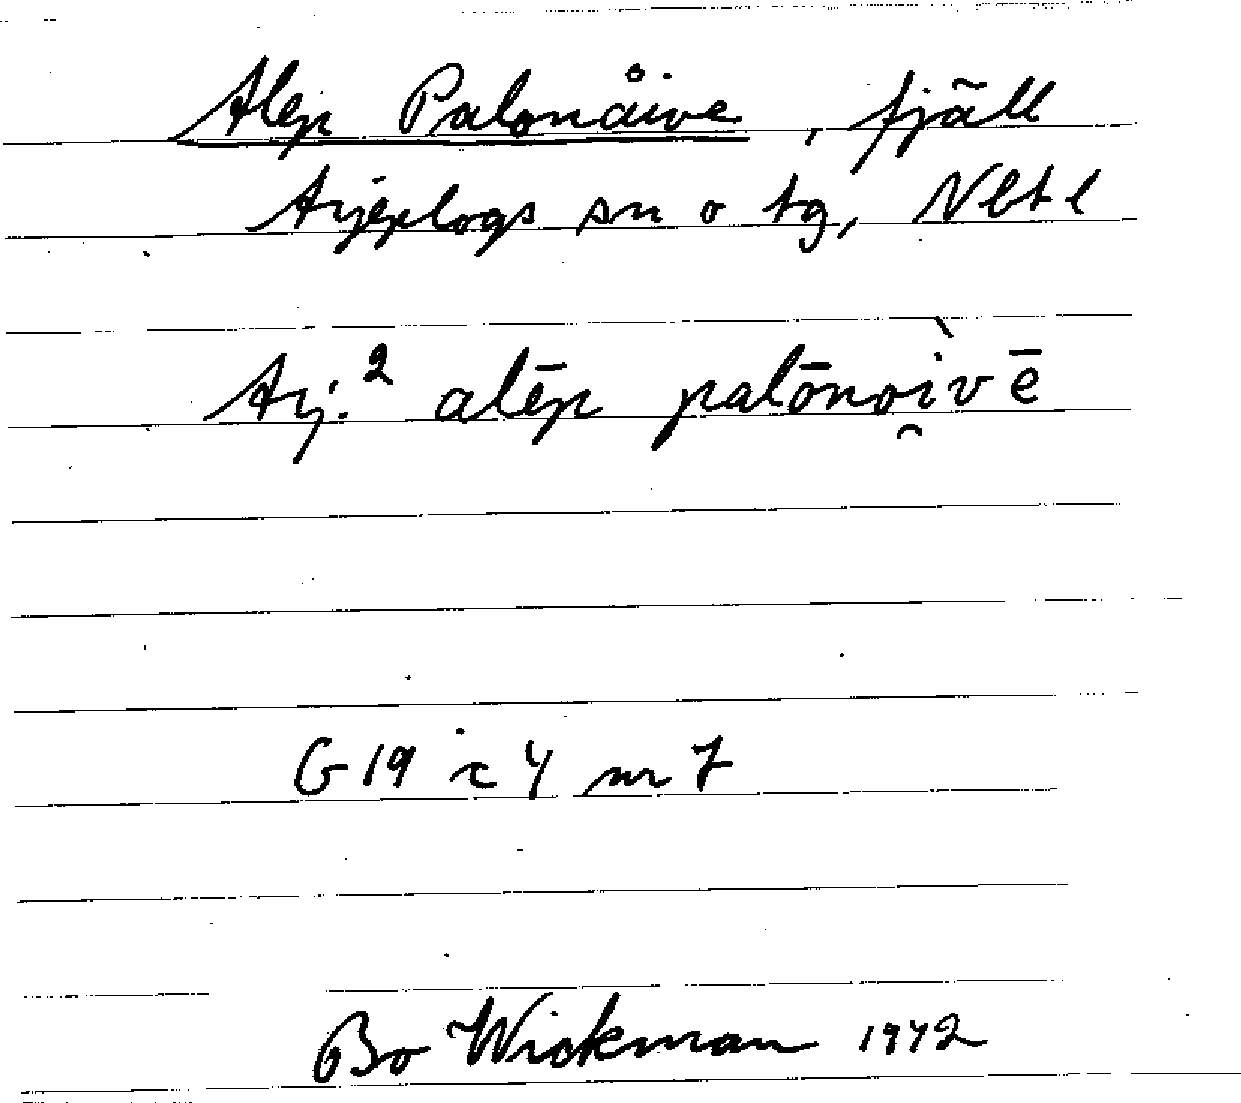 Alep Palonåive, fjäll
Arjeplogs sn o tg, Nbtl
Arj.² alēp palōnọ̑ìvē
G 19 i 4 nr 7
Bo Wickman 1942